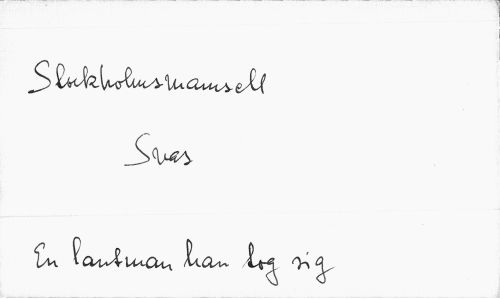 Stockholmsmamsell
Svas
En lantman han tog sig